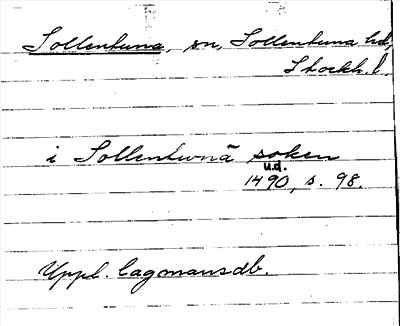 Sollentuna, sn, Sollentuna hd,
Stockh. l.
i Sollentwnä soken
u.d.
1490, s. 98.
Uppl. lagmansdb.